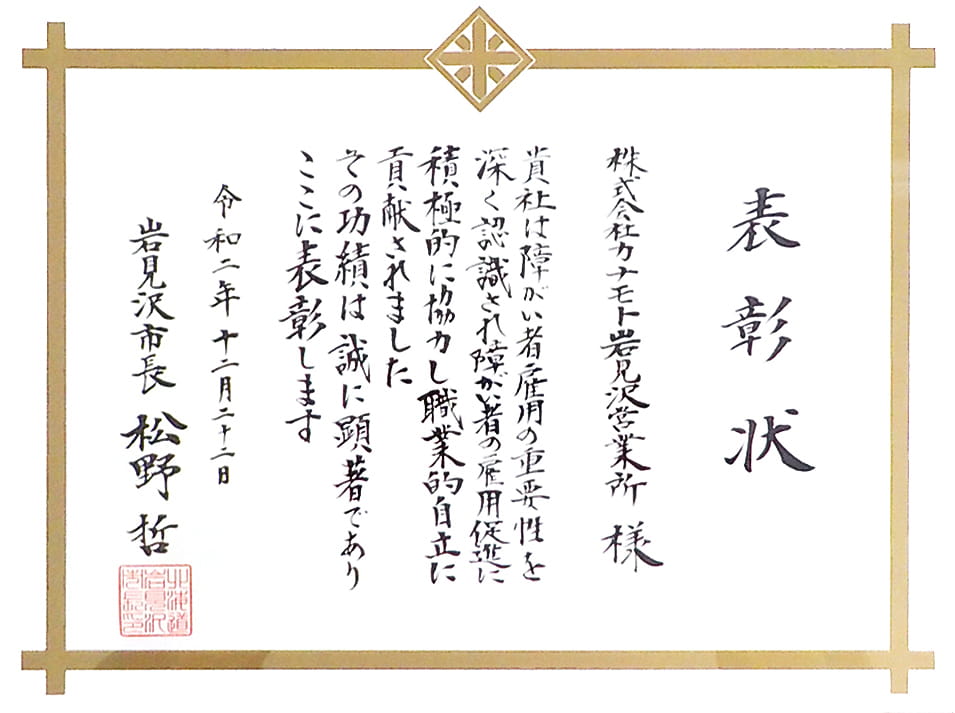 表彰状
株式会社カナモト岩見沢営業所 様
貴社は障がい者雇用の重要性を
深く認識され障がい者の雇用促進に
積極的に協力し職業的自立に
貢献されました
その功績は誠に顕著であり
ここに表彰します
令和二年十二月二十二日
岩見沢市長 松野 哲